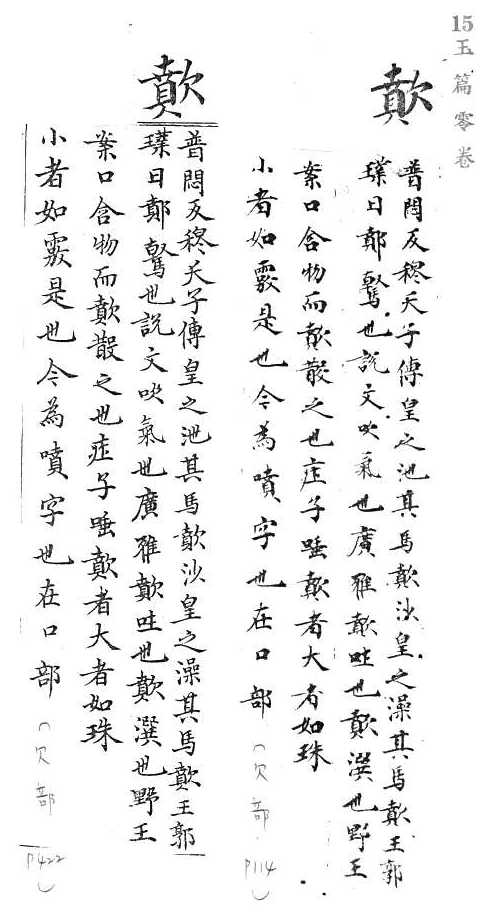 15玉篇零卷
歕
普悶反穆天子傳皇之池其馬歕沙皇之澤其馬歕玉郭
璞曰鄭驇也說文吹氣也廣雅歕吐也歕潠也野王
案口含物而歕散之也庄子唾歕者大者如珠
小者如霧是也今為噴字也在口部(欠部
P114)
歕
普悶反穆天子傳皇之池其馬歕沙皇之澡其馬歕玉郭
璞曰鄭驇也說文吹氣也廣雅歕吐也歕潠也野王
案口含物而歕散之也庄子唾歕者大者如珠
小者如霧是也今為噴字也在口部(欠部
P422)